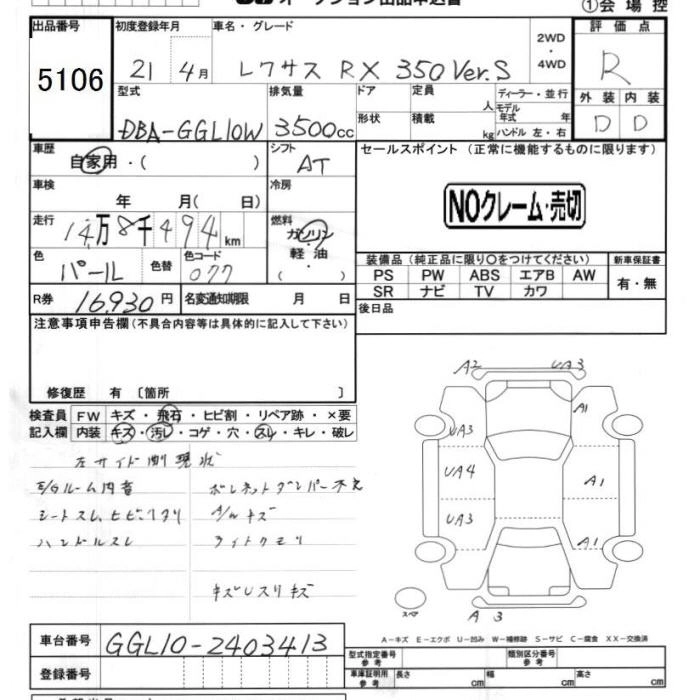 オークション出品申込書
①会場控
出品番号
5106
初度登録年月 車名・グレード
21 4月 レクサス RX 350 Ver.S
2WD
・
4WD
評価点
R
外装 内装
D D
型式 排気量
DBA-GGL10W 3500cc
ドア 定員 人
形状 積載 kg
ディーラー・並行
モデル年式 年
ハンドル 左・右
車歴
自家用・( )
シフト
AT
セールスポイント (正常に機能するものに限ります)
NOクレーム・売切
車検
年 月( 日)
冷房
走行
14万8千494km
燃料
ガソリン
軽油
( ・ )
色
パール
色替
色コード
077
装備品 (純正品に限り○をつけてください)
新車保証書
PS PW ABS エアB AW
SR ナビ TV カワ
有・無
R券 16,930円 名変通知期限 月 日
後日品
注意事項申告欄(不具合内容等は具体的に記入して下さい)
修復歴 有 〔箇所 〕
検査員記入欄
FW キズ・飛石・ヒビ割・リペア跡・×要
内装 キズ・汚レ・コゲ・穴・スレ・キレ・破レ
左サイド側現状
E/Gルーム内音
シートスレ、ヒビ、ヘタリ
ハンドルスレ
ボンネットダンパー不良
A/Wキズ
ライトクモリ
キズUスリキズ
A2 UA3
A1
UA3
UA4
A1
UA3
A1
スペア
A3
A-キズ E-エクボ U-凹み W-補修跡 S-サビ C-腐食 XX-交換済
車台番号
GGL10-2403413
登録番号
型式指定番号
参考
類別区分番号
参考
車庫証明用
参考
長さ cm 幅 cm 高さ cm